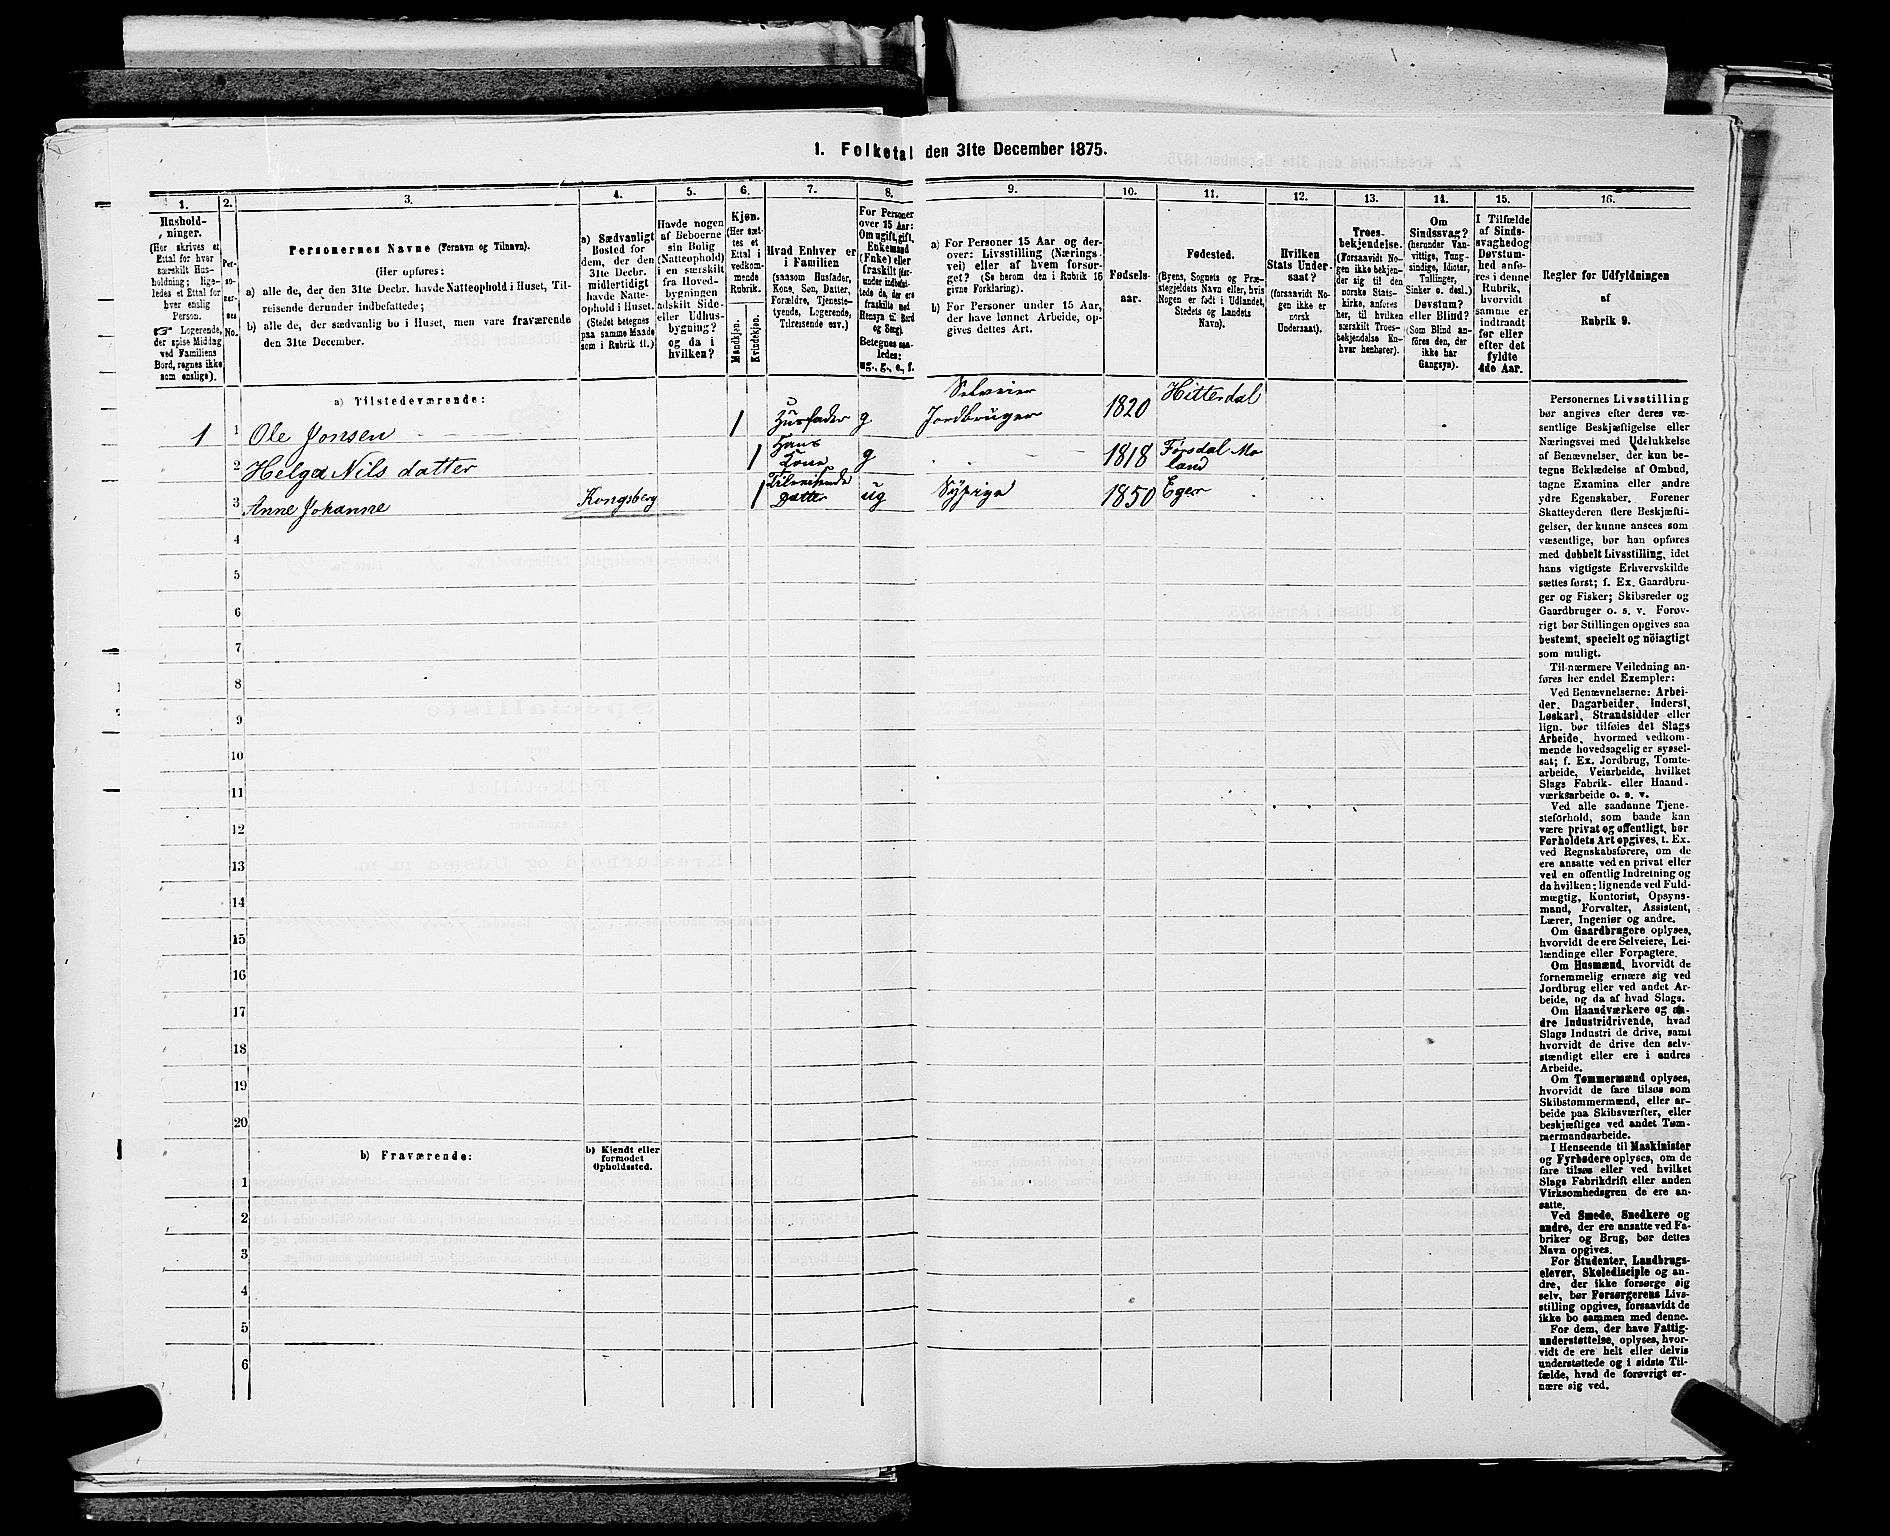 1. Folketal den 31te December 1875.
1.
Hushold-
ninger.
(Her skrives et
Ettal for hver
særskilt Hus-
holdning; lige-
ledes et Ettal for
hver enslig
Person.
☞ Logerende,
der spise Middag
ved Familiens
Bord, regnes ikke
som enslige).
2.
Per-
so-
ner-
nes
No.
3.
Personernes Navne (Fornavn og Tilnavn).
(Her opføres:
a) alle de, der den 31te Decbr. havde Natteophold i Huset, Til-
reisende derunder indbefattede;
b) alle de, der sædvanlig bo i Huset, men vare fraværende
den 31te December.
4.
a) Sædvanligt
Bosted for
dem, der den
31te Decbr.
midlertidigt
havde Natte-
ophold i Huset.
(Stedet betegnes
paa samme Maade
som i Rubrik 11.)
5.
Havde nogen
af Beboerne
sin Bolig
(Natteophold)
i en særskilt
fra Hoved-
bygningen
adskilt Side-
eller Udhus-
bygning?
og da i
hvilken?
6.
Kjøn.
(Her sæt-
tes et
Ettal i
vedkom-
mende
Rubrik.
Mandkjøn.
Kvindekjøn.
7.
Hvad Enhver er
i Familien
(saasom Husfader,
Kone, Søn, Datter,
Forældre, Tjeneste-
tyende, Logerende,
Tilreisende osv.)
8.
For Personer
over 15 Aar:
Om ugift, gift,
Enkemand
(Enke) eller
fraskilt (der-
under indbefat-
tede de, der ere
fraskilte med
Hensyn til Bord
og Seng).
Betegnes saa-
ledes:
ug., g., e., f.
9.
a) For Personer 15 Aar og der-
over: Livsstilling (Nærings-
vei) eller af hvem forsør-
get? (Se herom den i Rubrik 16
givne Forklaring).
b) For Personer under 15 Aar,
der have lønnet Arbeide, op-
gives dettes Art.
10.
Fødsels-
aar.
11.
Fødested.
(Byens, Sognets og Præ-
stegjeldets Navn eller, hvis
Nogen er født i Udlandet,
Stedets og Landets
Navn).
12.
Hvilken
Stats Under-
saat?
(forsaavidt No-
gen ikke er
norsk
Undersaat).
13.
Troes-
bekjendelse.
(Forsaavidt No-
gen ikke bekjen-
der sig til den
norske Stats-
kirke, anføres
her, til hvilken
særskilt Troes-
bekjendelse En-
hver henhører).
14.
Om
Sindssvag?
(herunder Van-
vittige, Tung-
sindige, Idioter,
Tullinger,
Sinker o. desl.)
Døvstum?
eller Blind?
(Som Blind an-
føres den, der
ikke har
Gangsyn).
15.
I Tilfælde
af Sinds-
svaghed og
Døvstum-
hed anfø-
res i denne
Rubrik,
hvorvidt
samme er
indtraadt
før eller
efter det
fyldte
4de Aar.
16.
Regler for Udfyldningen
af
Rubrik 9.
a) Tilstedeværende:
1 1 Ole Jonsen 1 Husfader g Selveier Jordbruger 1820 Hitterdal
2 Helga Nils datter 1 Hans Kone g 1818 Førsdal Mo-
land
3 Anne Johanne Kongsberg 1 Tilreisende Datter ug Sypige 1850 Eger
4
5
6
7
8
9
10
11
12
13
14
15
16
17
18
19
20
b) Fraværende:
b) Kjendt eller
formodet
Opholdssted.
1
2
3
4
5
6
Personernes Livsstilling
bør angives efter deres væ-
sentlige Beskjæftigelse eller
Næringsvei med Udelukkelse
af Benævnelser, der kun be-
tegne Beklædelse af Ombud,
tagne Examina eller andre
ydre Egenskaber. Forener
Skatteyderen flere Beskjæfti-
gelser, der kunne ansees som
væsentlige, bør han opføres
med dobbelt Livsstilling, idet
hans vigtigste Erhvervskilde
sættes først; f. Ex. Gaardbru-
ger og Fisker; Skibsreder og
Gaardbruger o. s. v. Forøv-
rigt bør Stillingen opgives saa
bestemt, specielt og nöiagtigt
som muligt.
Til nærmere Veiledning an-
føres her endel Exempler:
Ved Benævnelserne: Arbei-
der, Dagarbeider, Inderst,
Løskarl, Strandsidder eller
lign. bør tilføies det Slags
Arbeide, hvormed vedkom-
mende hovedsagelig er syssel-
sat; f. Ex. Jordbrug, Tomte-
arbeide, Veiarbeide, hvilket
Slags Fabrik- eller Haand-
værksarbeide o. s. v.
Ved alle saadanne Tjene-
steforhold, som baade kan
være privat og offentligt, bør
Forholdets Art opgives, t. Ex.
ved Regnskabsførere, om de
ere ansatte ved en privat eller
ved en offentlig Indretning og
da hvilken; lignende ved Fuld-
mægtig, Kontorist, Opsyns-
mand, Forvalter, Assistent,
Lærer, Ingeniør og andre.
Om Gaardbrugere oplyses,
hvorvidt de ere Selveiere, Lei-
lændinge eller Forpagtere.
Om Husmænd, hvorvidt de
fornemmelig ernære sig ved
Jordbrug eller ved andet Ar-
beide, og da af hvad Slags.
Om Haandværkere og an-
dre Industridrivende, hvad
Slags Industri de drive, samt
hvorvidt de drive den selv-
stændigt eller ere i andres
Arbeide.
Om Tømmermænd oplyses,
hvorvidt de fare tilsøs som
Skibstømmermænd, eller ar-
beide paa Skibsværfter, eller
beskjæftiges ved andet Tøm-
mermandsarbeide.
I Henseende til Maskinister
og Fyrbødere oplyses, om de
fare tilsøs eller ved hvilket
Slags Fabrikdrift eller anden
Virksomhedsgren de ere an-
satte.
Ved Smede, Snedkere og
andre, der ere ansatte ved Fa-
briker og Brug, bør dettes
Navn opgives.
For Studenter, Landbrugs-
elever, Skoledisciple og an-
dre, der ikke forsørge sig
selv, bør Forsørgerens Livs-
stilling opgives, forsaavidt de
ikke bo sammen med denne.
For dem, der have Fattig-
understøttelse, oplyses, hvor-
vidt de ere helt eller delvis
understøttede og i sidste Til-
fælde, hvad de forøvrigt er-
nære sig ved.